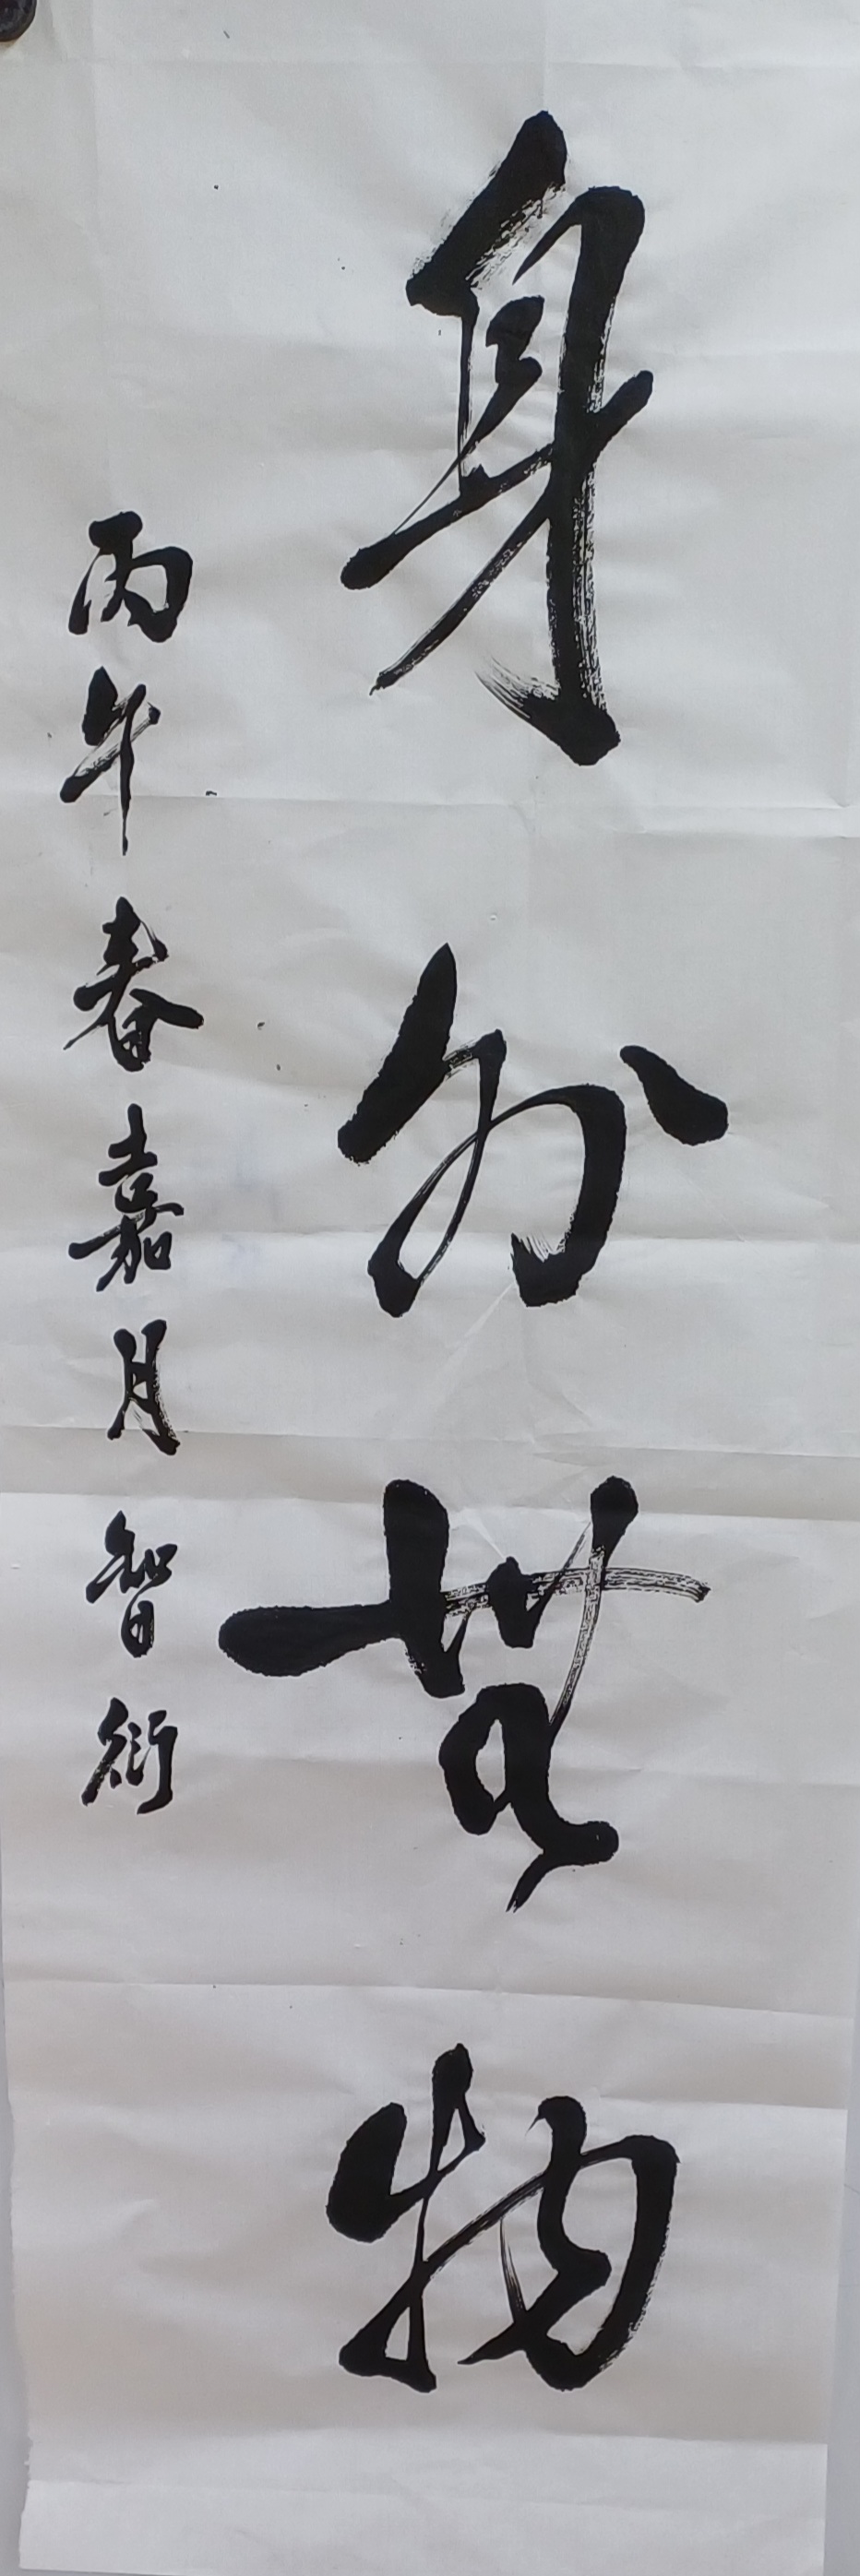 身外無物
丙午春嘉月智衍